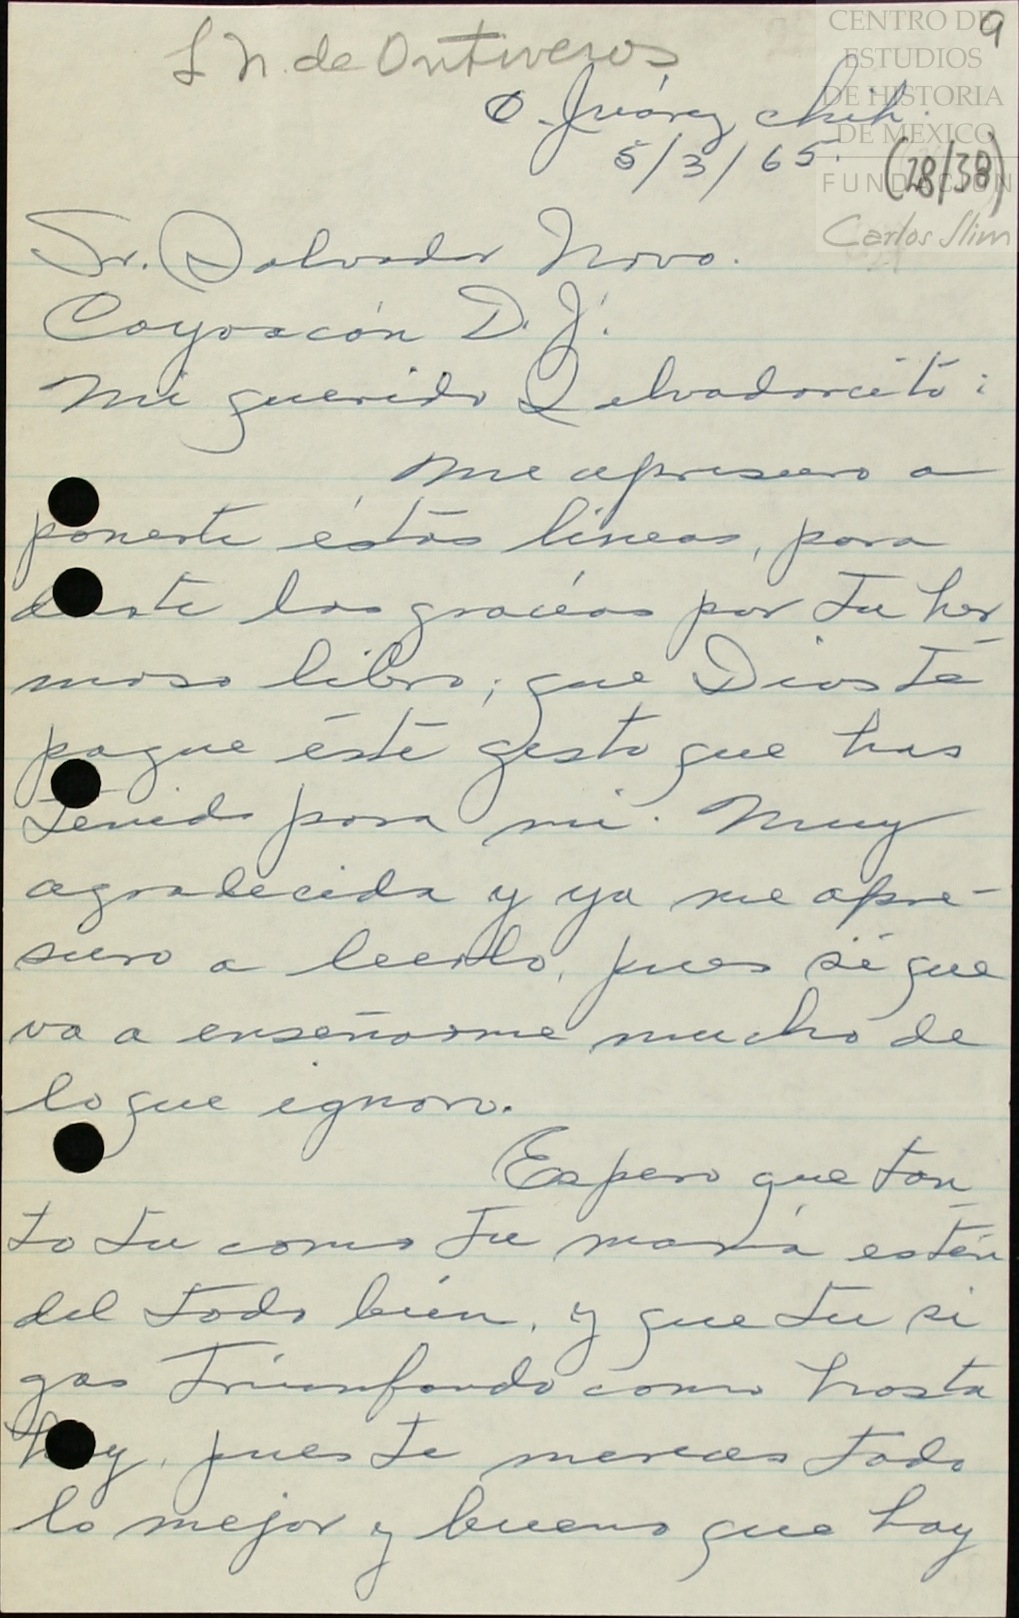 9
L N. de Ontiveros
C. Juárez Chih.
5/3/65.
(28/38)
CENTRO DE
ESTUDIOS
DE HISTORIA
DE MEXICO
FUNDACIÓN
Carlos Slim
Sr. Salvador Novo.
Coyoacán D. F.
Mi querido Salvadorcito:
Me apresuro a
ponerte éstas líneas, para
darte las gracias por tu her
moso libro; que Dios te
pague éste gesto que has
tenido para mi. Muy
agradecida y ya me apre-
suro a leerlo, pues sé que
va a enseñarme mucho de
lo que ignoro.
Espero que tan
to tu como tu mamá estén
del todo bién, y que tu si
gas triunfando como hasta
hoy, pues te mereces todo
lo mejor y bueno que hay